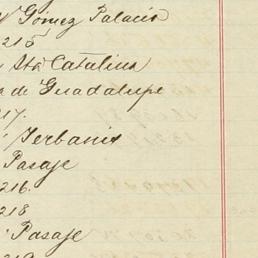 Gómez Palacio
215
Sta Catalina
de Guadalupe
217.
Terbanis
Pasaje
216.
218
Pasaje
219